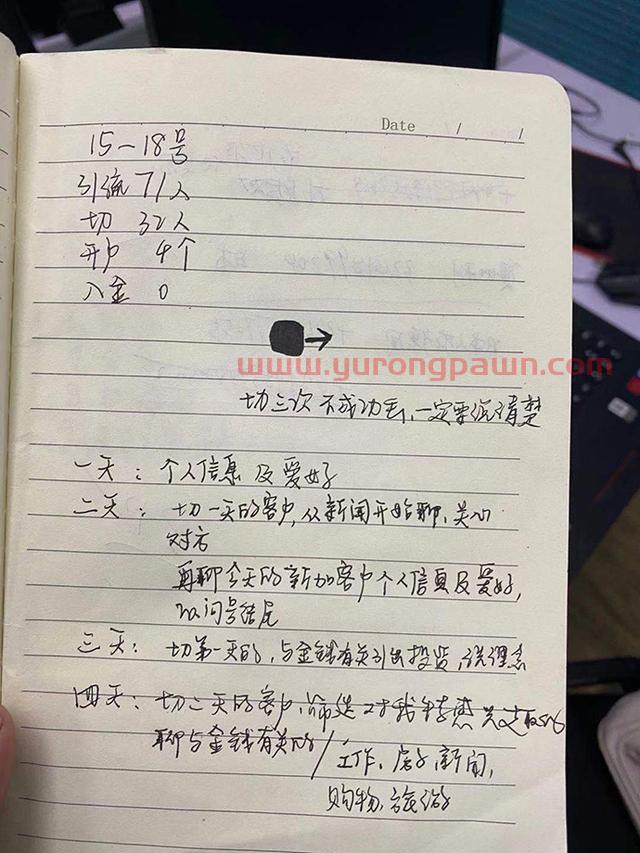 Date / /
15-18号
引流 71人
切 32人
开户 4个
入金 0
www.yurongpawn.com
切三次不成功丢,一定要说清楚
一天: 个人信息及爱好
二天: 切一天的客户,从新闻开始聊,关心
对方
再聊今天的新加客户个人信息及爱好,
以问号结尾
三天: 切第一天的,与金钱有关引出投资,说理念
四天: 切二天的客户,筛选对我
聊与金钱有关的/工作,房子,新闻,
购物,旅游